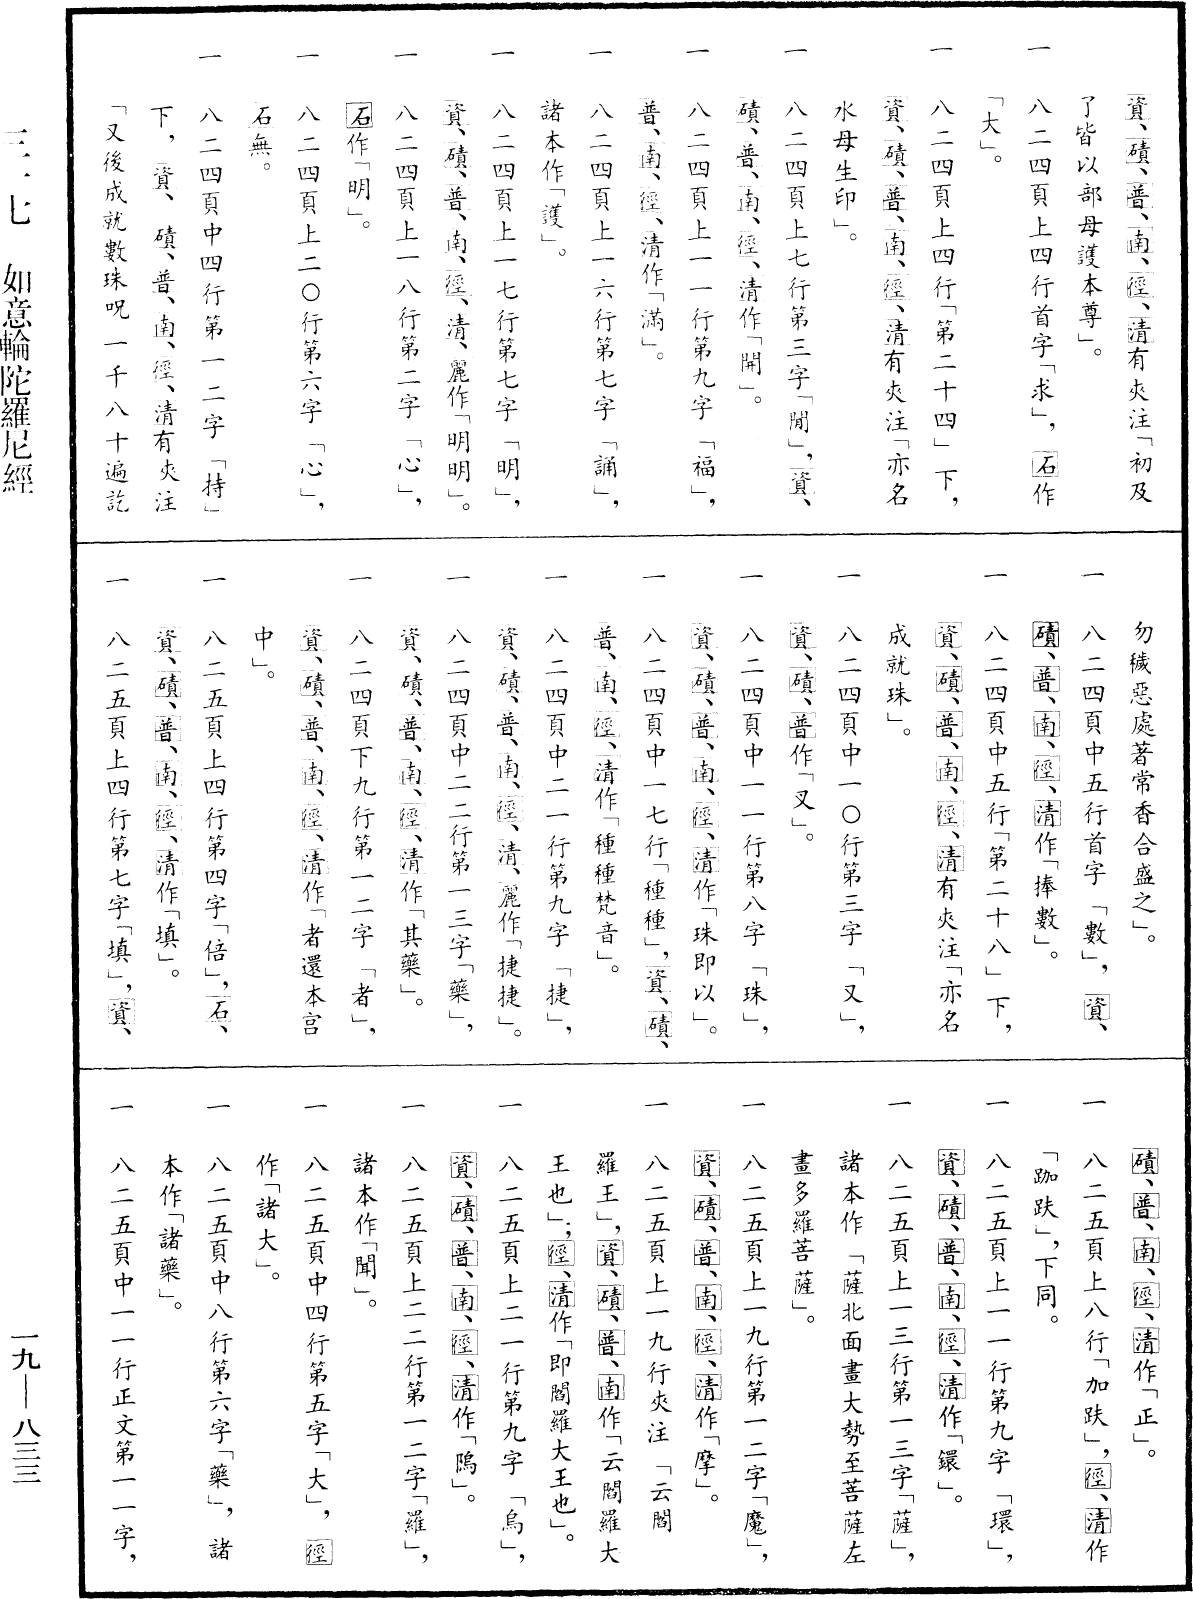 資、磧、普、南、徑、清有夾注「初及
了皆以部母護本尊」。
一　八二四頁上四行首字「求」，石作
「大」。
一　八二四頁上四行「第二十四」下，
資、磧、普、南、徑、清有夾注「亦名
水母生印」。
一　八二四頁上七行第三字「閒」，資、
磧、普、南、徑、清作「開」。
一　八二四頁上一一行第九字「福」，
普、南、徑、清作「滿」。
一　八二四頁上一六行第七字「誦」，
諸本作「護」。
一　八二四頁上一七行第七字「明」，
資、磧、普、南、徑、清、麗作「明明」。
一　八二四頁上一八行第二字「心」，
石作「明」。
一　八二四頁上二〇行第六字「心」，
石無。
一　八二四頁中四行第一二字「持」
下，資、磧、普、南、徑、清有夾注
「又後成就數珠呪一千八十遍訖
勿穢惡處著常香合盛之」。
一　八二四頁中五行首字「數」，資、
磧、普、南、徑、清作「捧數」。
一　八二四頁中五行「第二十八」下，
資、磧、普、南、徑、清有夾注「亦名
成就珠」。
一　八二四頁中一〇行第三字「又」，
資、磧、普作「叉」。
一　八二四頁中一一行第八字「珠」，
資、磧、普、南、徑、清作「珠即以」。
一　八二四頁中一七行「種種」，資、磧、
普、南、徑、清作「種種梵音」。
一　八二四頁中二一行第九字「捷」，
資、磧、普、南、徑、清、麗作「捷捷」。
一　八二四頁中二二行第一三字「藥」，
資、磧、普、南、徑、清作「其藥」。
一　八二四頁下九行第一二字「者」，
資、磧、普、南、徑、清作「者還本宮
中」。
一　八二五頁上四行第四字「倍」，石、
資、磧、普、南、徑、清作「填」。
一　八二五頁上四行第七字「填」，資、
磧、普、南、徑、清作「正」。
一　八二五頁上八行「加趺」，徑、清作
「跏趺」，下同。
一　八二五頁上一一行第九字「環」，
資、磧、普、南、徑、清作「鐶」。
一　八二五頁上一三行第一三字「薩」，
諸本作「薩北面畫大勢至菩薩左
畫多羅菩薩」。
一　八二五頁上一九行第一二字「魔」，
資、磧、普、南、徑、清作「摩」。
一　八二五頁上一九行夾注「云閻
羅王」，資、磧、普、南作「云閻羅大
王也」；徑、清作「即閻羅大王也」。
一　八二五頁上二一行第九字「烏」，
資、磧、普、南、徑、清作「隝」。
一　八二五頁上二二行第一二字「羅」，
諸本作「闇」。
一　八二五頁中四行第五字「大」，徑
作「諸大」。
一　八二五頁中八行第六字「藥」，諸
本作「諸藥」。
一　八二五頁中一一行正文第一一字，
三一七　如意輪陀羅尼經
一九—八三三